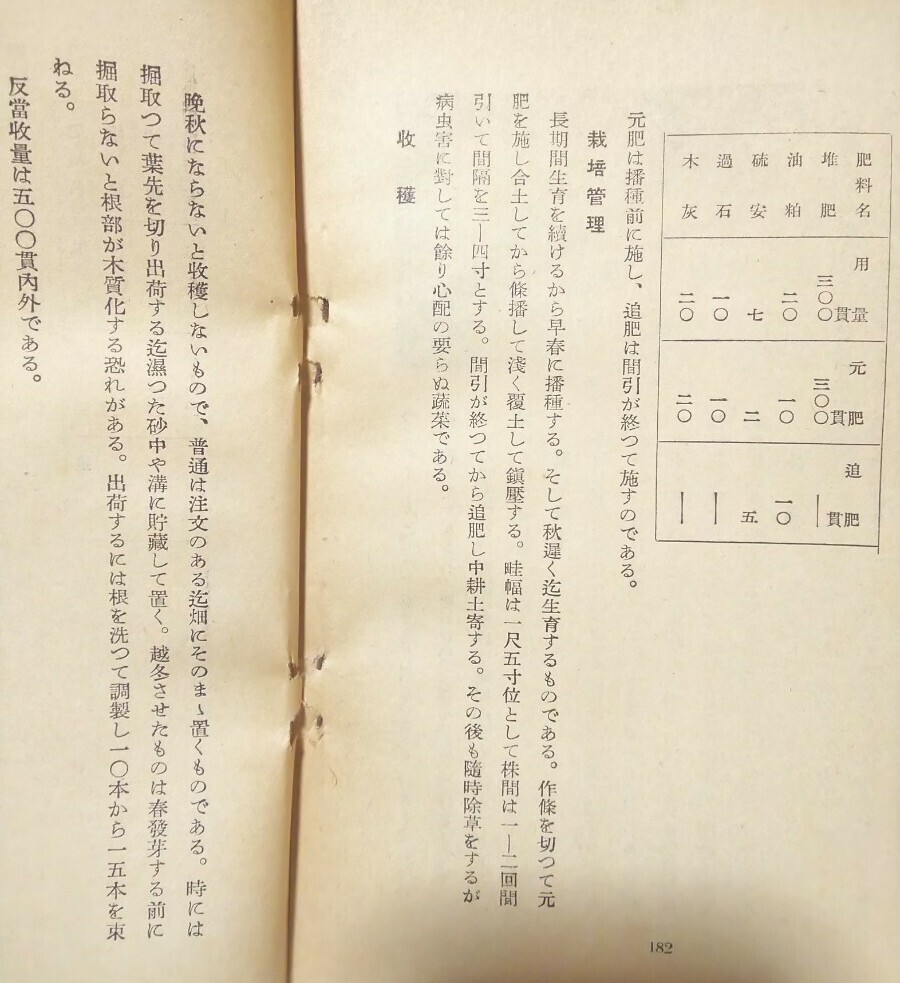 肥料名 用量 元肥 追肥
堆肥 三〇〇貫 三〇〇貫 ―貫
油粕 二〇 一〇 一〇
硫安 七 二 五
過石 一〇 一〇 ―
木灰 二〇 二〇 ―
元肥は播種前に施し、追肥は間引が終つて施すのである。
栽培管理
長期間生育を續けるから早春に播種する。そして秋遲く迄生育するものである。作條を切つて元
肥を施し合土してから條播して淺く覆土して鎭壓する。畦幅は一尺五寸位として株間は一―二回間
引いて間隔を三―四寸とする。間引が終つてから追肥し中耕土寄する。その後も隨時除草をするが
病虫害に對しては餘り心配の要らぬ蔬菜である。
收穫
晩秋にならないと收穫しないもので、普通は注文のある迄畑にそのまゝ置くものである。時には
掘取つて葉先を切り出荷する迄濕つた砂中や溝に貯藏して置く。越冬させたものは春發芽する前に
掘取らないと根部が木質化する恐れがある。出荷するには根を洗つて調製し一〇本から一五本を束
ねる。
反當收量は五〇〇貫內外である。
182